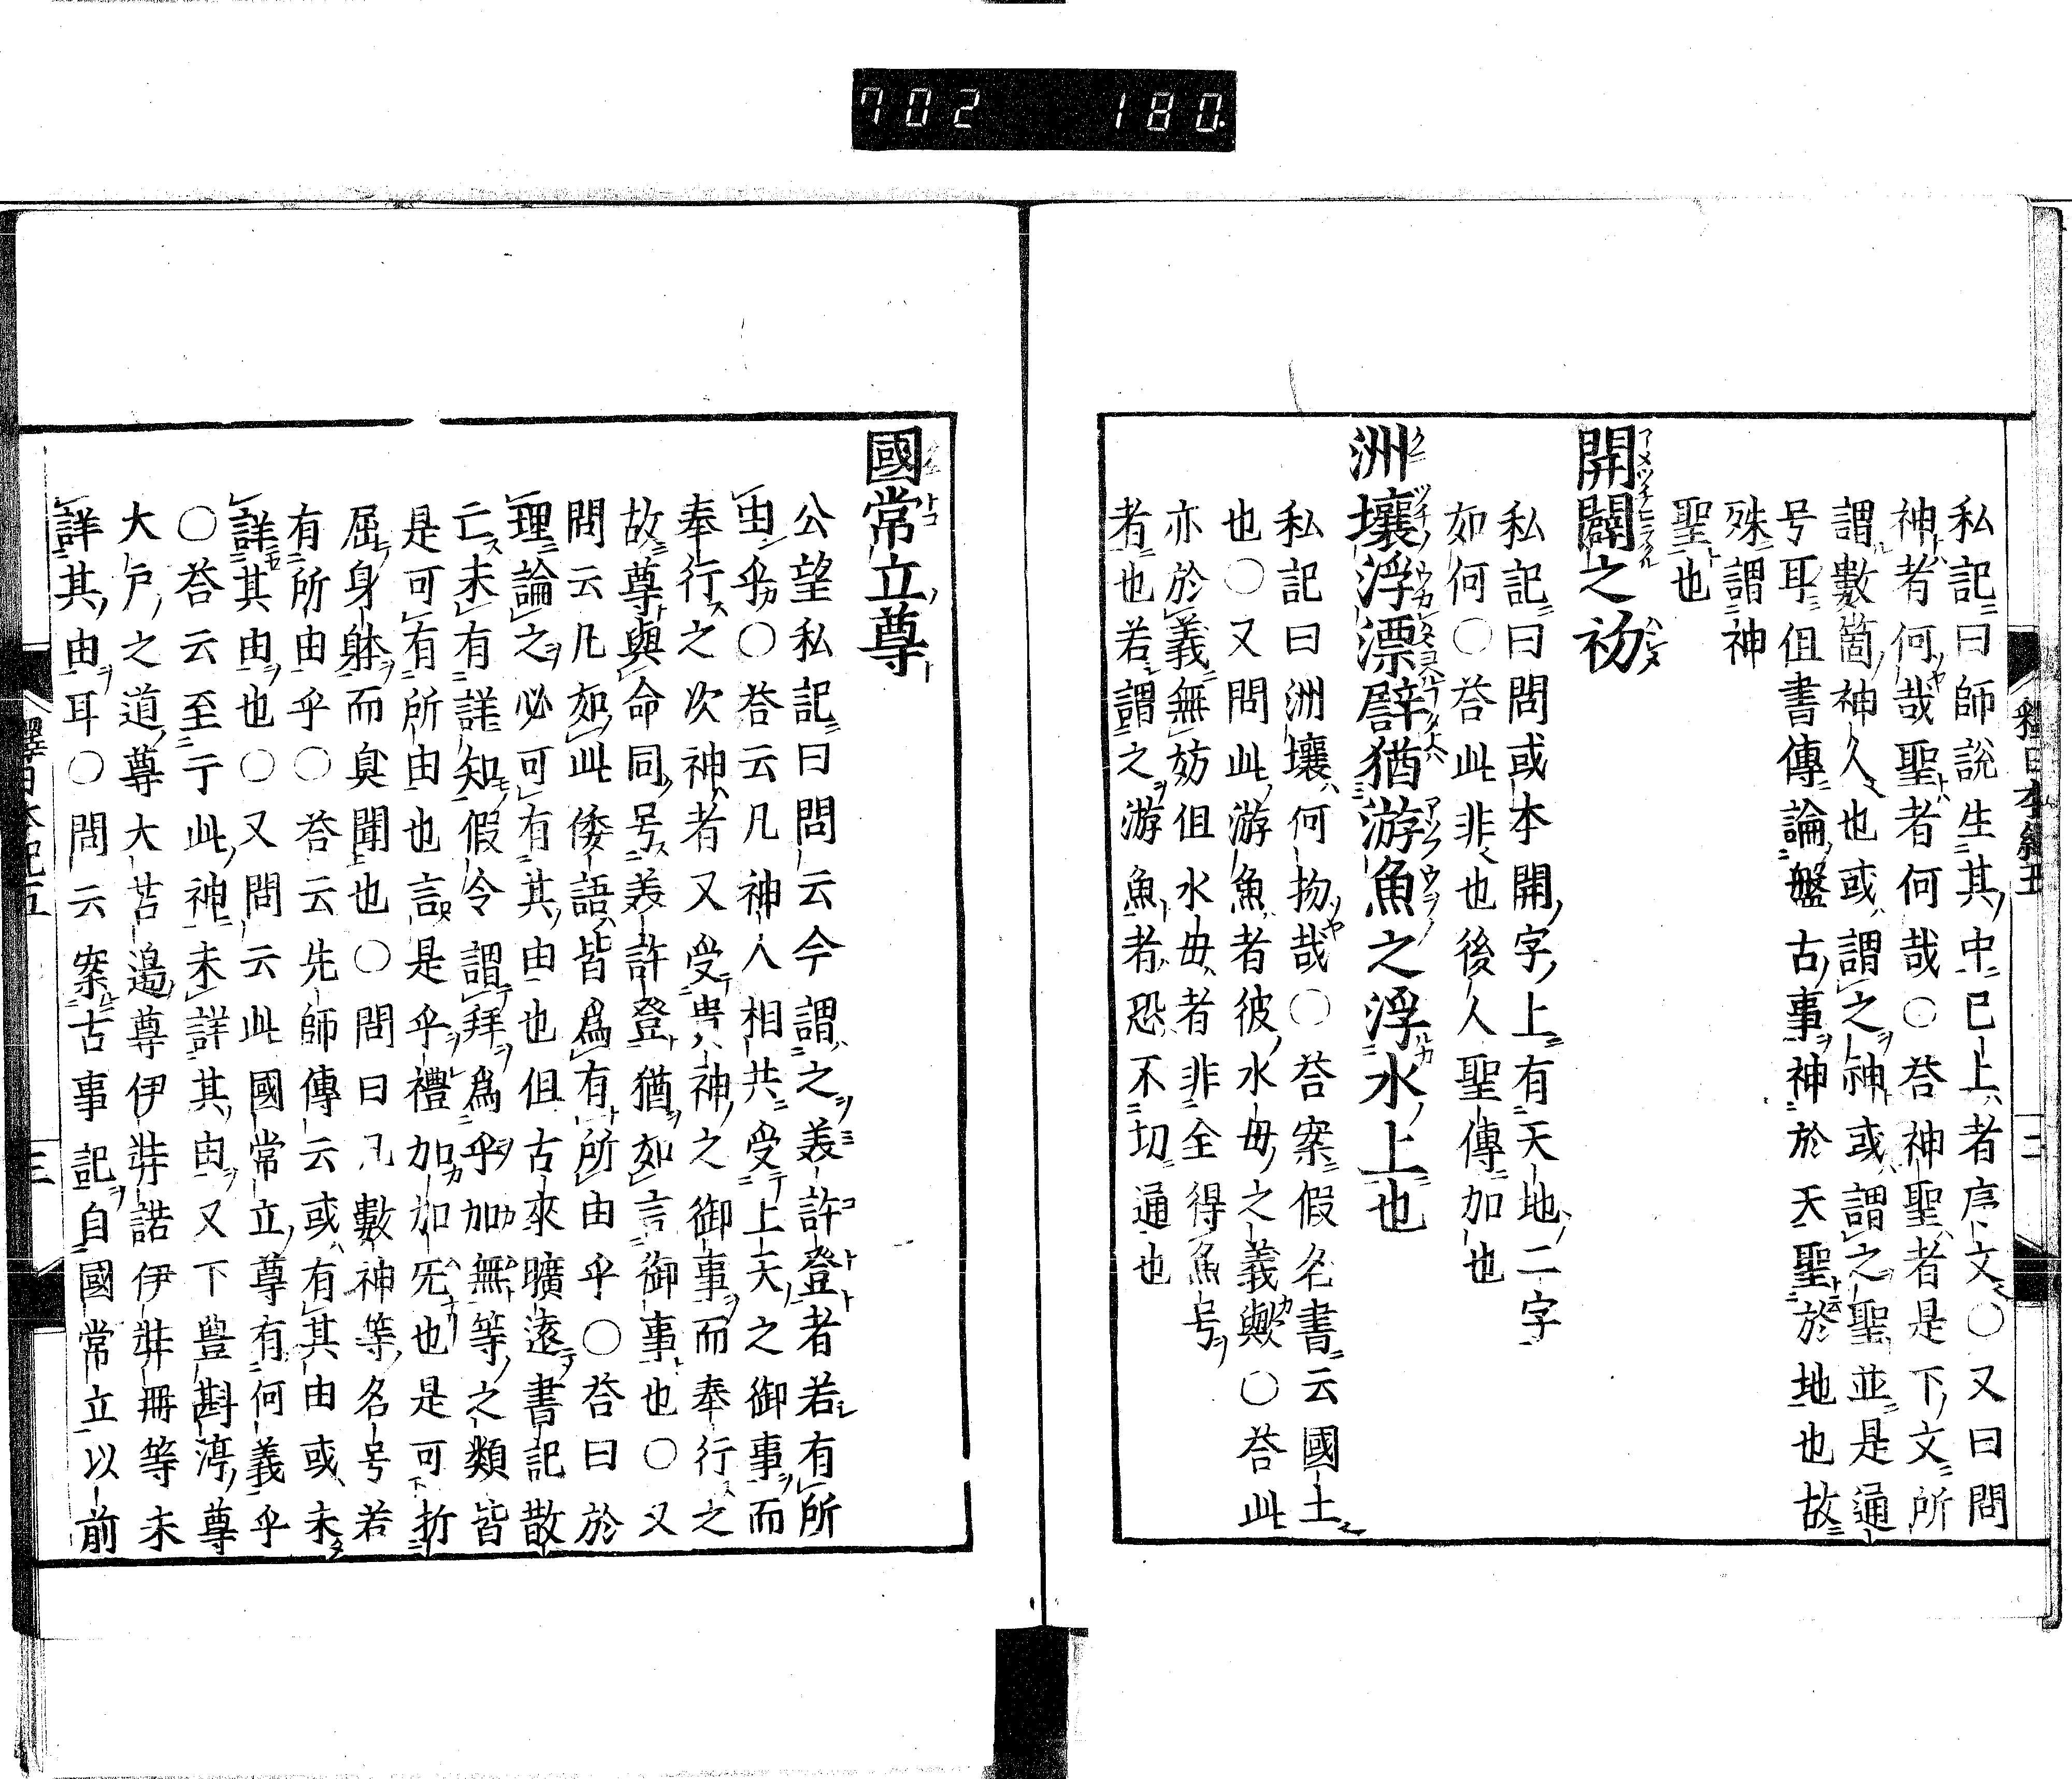 702 180
私記曰師説生其中已上者序文〇又曰問
神者何哉聖者何哉〇荅神聖者是下文所
謂數箇神人也或謂之神或謂之聖並是通
号耳但書傳論盤古事神於天聖於地也故
殊謂神
聖也
開闢之初
私記曰問或本開字上有天地二字
如何〇荅此非也後人聖傳加也
洲壤浮漂譬猶游魚之浮水上也
私記曰洲壤何物哉〇荅案假名書云國土
也〇又問此游魚者彼水母之義歟〇荅此
亦於義無妨但水母者非全得魚号
者也若謂之游魚者恐不切通也
國常立尊
公望私記曰問云今謂之美許登者若有所
由乎〇荅云凡神人相共受上天之御事而
奉行之次神者又受貴神之御事而奉行之
故尊與命同号美許登猶如言御事也〇又
問云凡如此倭語皆爲有所由乎〇荅曰於
理論之必可有其由也但古來曠遠書記散
亡未有詳知假令謂拜爲乎加無等之類皆
是可有所由也言是乎禮加加无也是可折
屈身躰而臭聞也〇問曰凡數神等名号若
有所由乎〇荅云先師傳云或有其由或未
詳其由也〇又問云此國常立尊有何義乎
〇荅云至于此神未詳其由又下豐斟渟尊
大戸之道尊大苫邊尊伊弉諾伊弉冊等未
詳其由耳〇問云案古事記自國常立以前